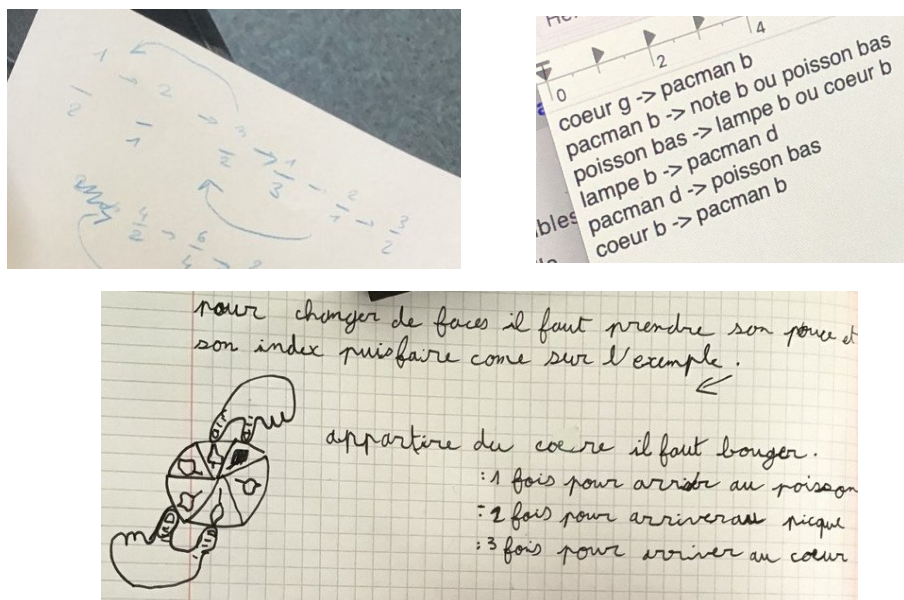 1 -> 2
2
1
-> 3
2
-> 1
3
- 2
1
-> 3
2
4
2
-> 6
4
->
0 2 4
coeur g -> pacman b
pacman b -> note b ou poisson bas
poisson bas -> lampe b ou coeur b
lampe b -> pacman d
pacman d -> poisson bas
coeur b -> pacman b
bles
pour changer de faces il faut prendre son pouce et
son index puis faire come sur l'exemple.
appartire du coere il faut bouger.
:1 fois pour arriver au poisson
:2 fois pour arriver au picque
:3 fois pour arriver au coeur